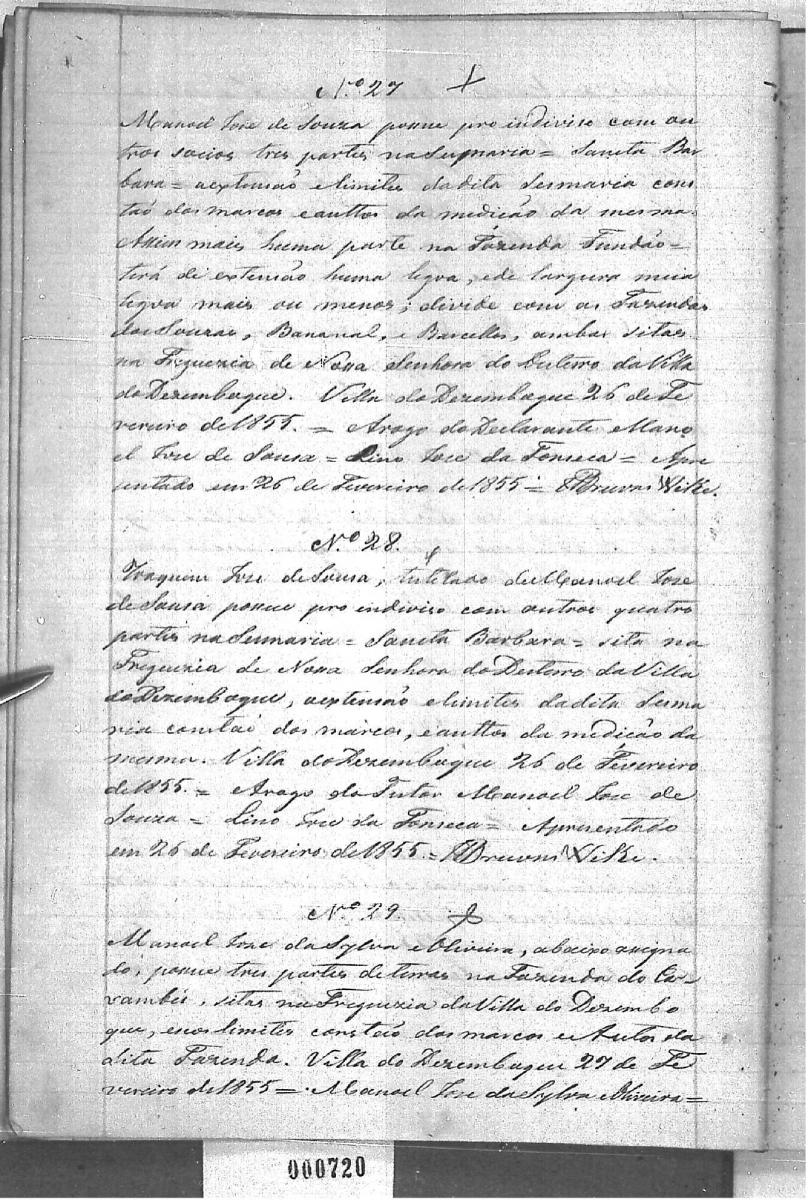 N.º 27
Manoel Jose de Souza possue pro indiviso com ou
tros socios tres partes na Sesmaria = Sancta Bar
bara = aextensão elimites dadita Sesmaria cons
taõ dos marcos eauttos da medicão da mesma.
Assim mais huma parte na Fazenda Fundão =
terá de extensão huma legoa, ede largura meia
legoa mais ou menos; divide com as Fazendas
dos Souzas, Bananal, e Barcellos, ambas sitas
na Freguezia de Nossa Senhora do Desterro da Villa
do Dezemboque. Villa do Dezemboque 26 de Fe
vereiro de 1855. = Arogo do Declarante Mano
el Jose de Sousa = Lino Jose da Fonseca = Apre
sentado em 26 de Fevereiro de 1855 =
N.º 28.
Joaquim Jose de Sousa, tutelado de Manoel Jose
de Sousa possue pro indiviso com outros quatro
partes na Sesmaria = Sancta Barbara = sita na
Freguezia de Nossa Senhora do Desterro da Villa
do Dezemboque, aextensão elimites dadita Sesma
ria constaõ dos marcos, eauttos da medicão da
mesma. Villa do Dezemboque 26 de Fevereiro
de 1855. = Arogo do Tutor Manoel Jose de
Souza = Lino Jose da Fonseca = Apresentado
em 26 de Fevereiro de 1855. =
N.º 29
Manoel Jose da Sylva e Oliveira, abaixo assigna
do, possue tres partes de terras na Fazenda do
sitas na Freguezia da Villa do Dezembo
que, eseos limites constaõ dos marcos e Autos da
dita Fazenda. Villa do Dezemboque 27 de Fe
vereiro de 1855 = Manoel Jose da Sylva e Oliveira =
000720